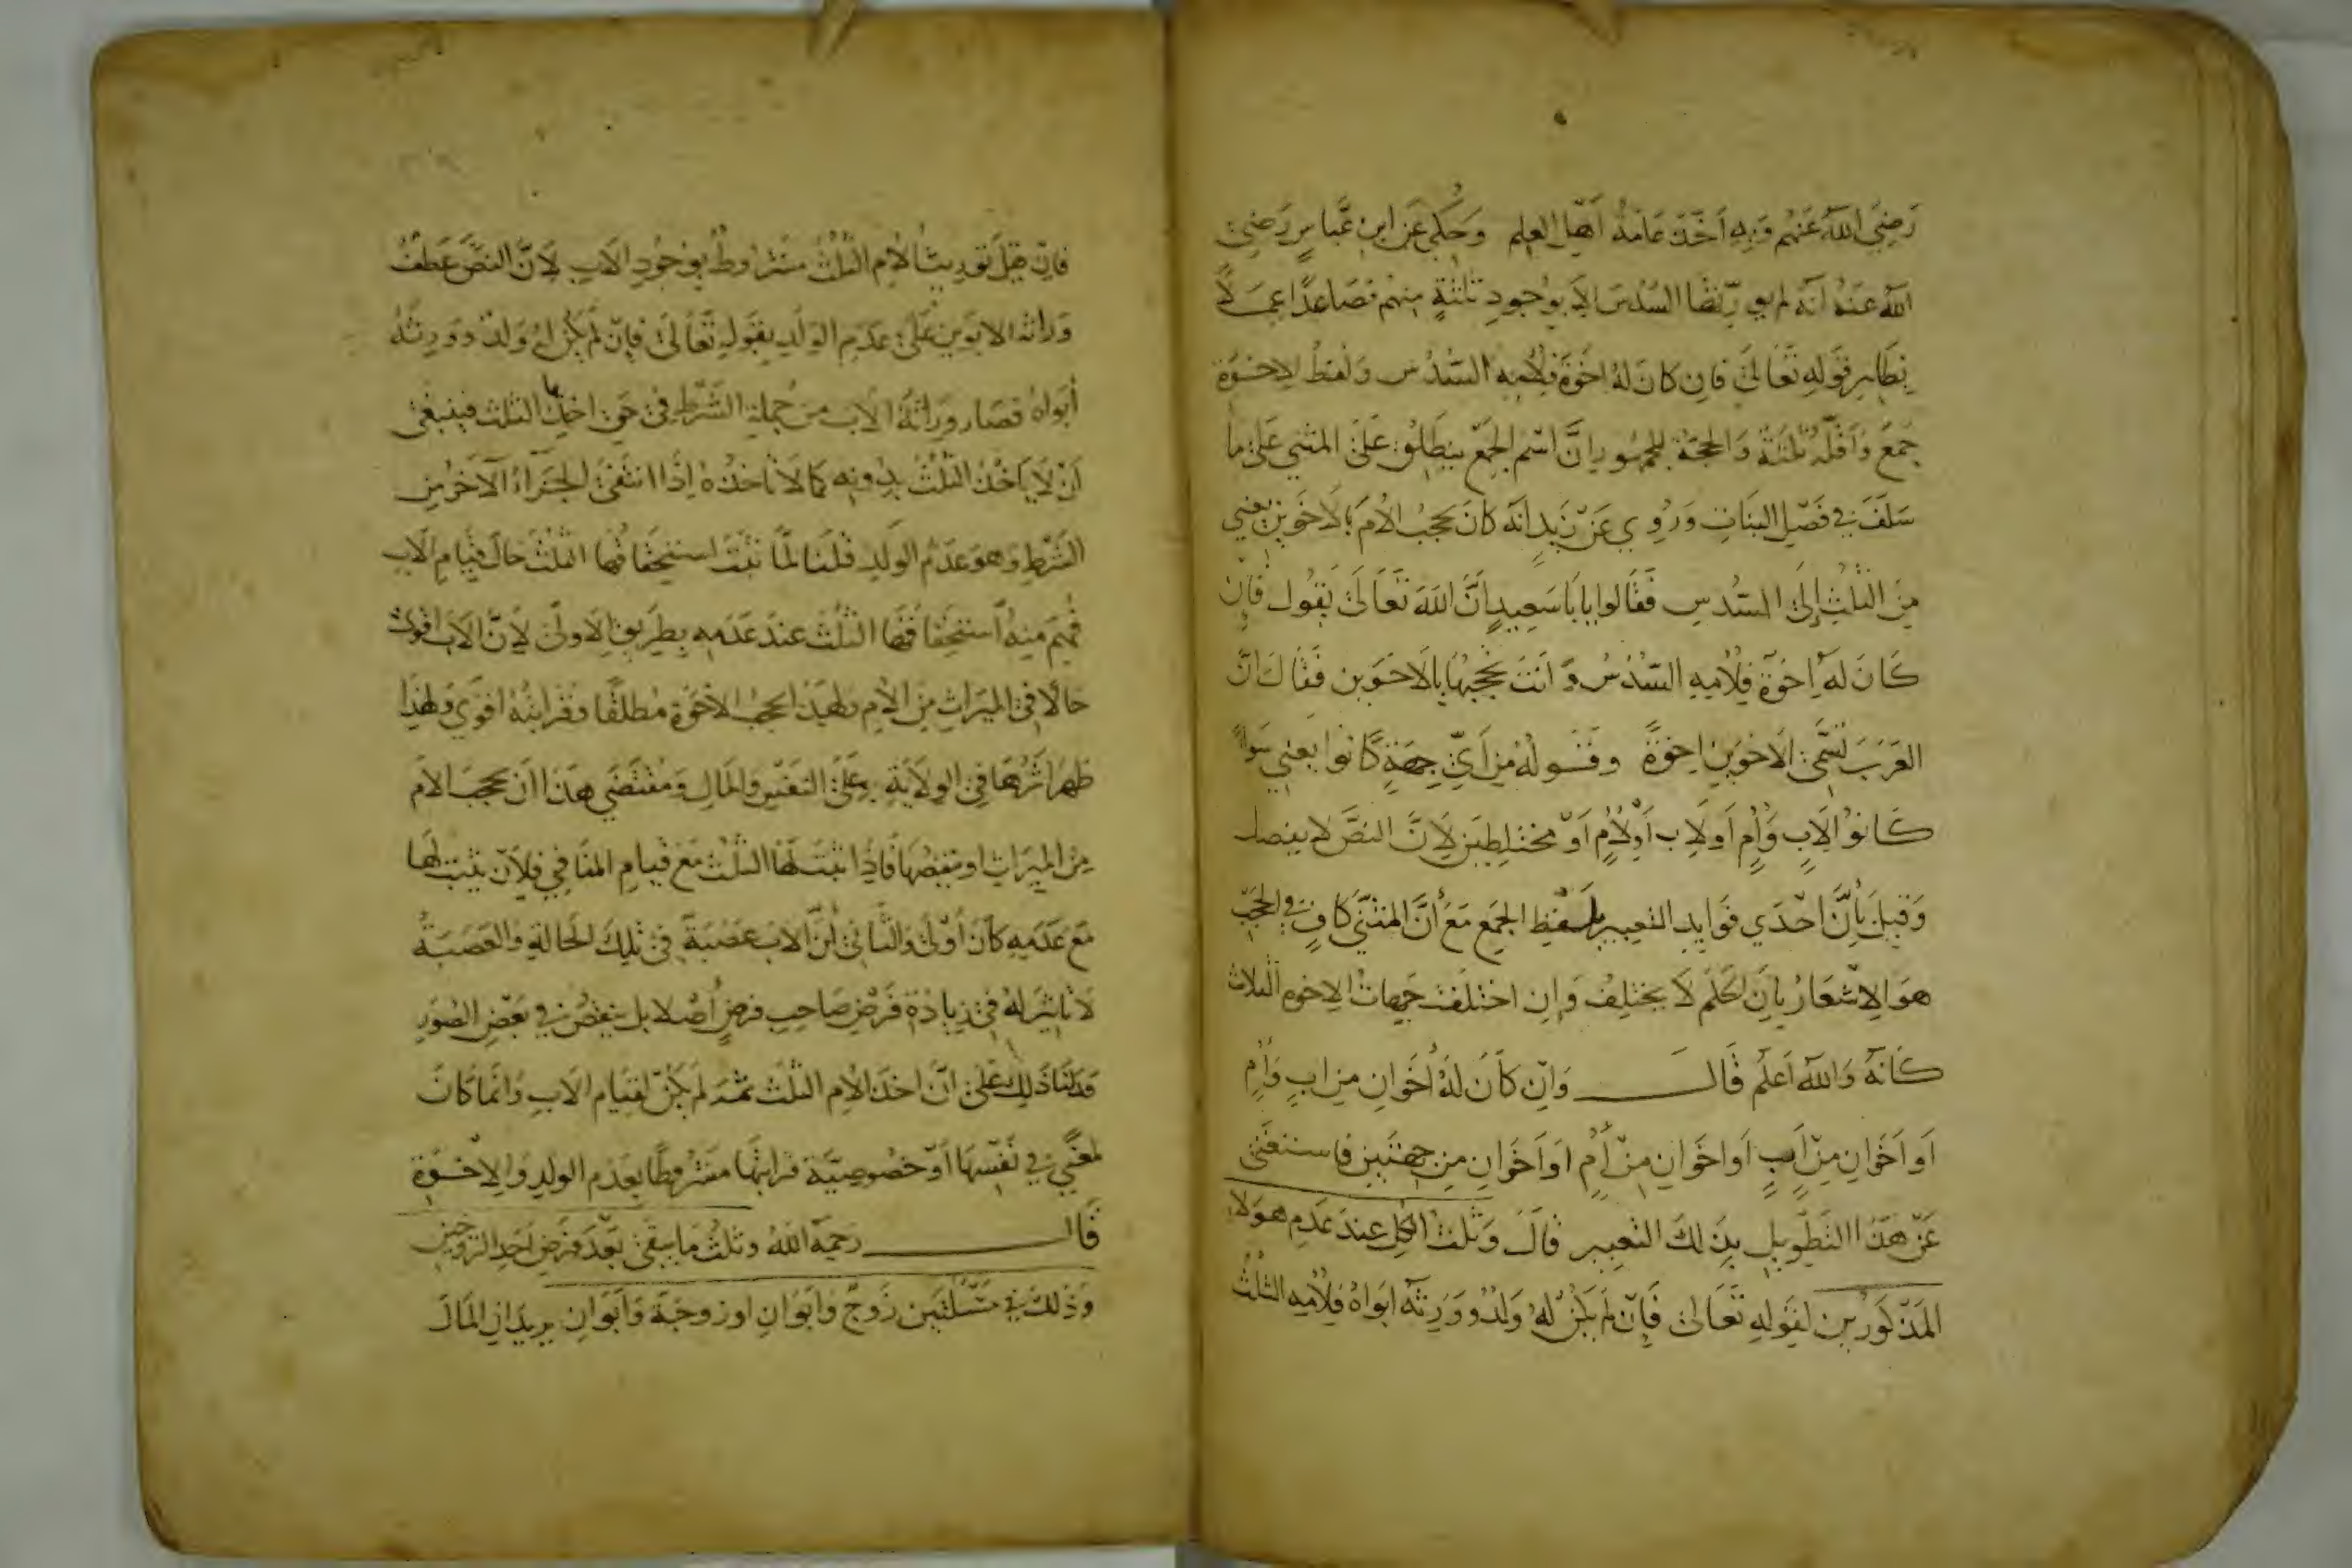 رَضِيَ اللهُ عَنْهُم وَبِهِ اَخَذَ عَامَةُ اَهْلِ العِلم وَحُكِيَ عَن ابن عَبَّاسٍ رَضِيَ
اللهُ عَنهُ اَنهُ لم يورّثها السُدُسَ اِلا بوُجودِ ثلثةٍ منهم فصَاعدًا عمَلاً
بظاهِر قوَلِهِ تعَالَى فان كانَ لهُ اخوَة فلاُمِهِ السُدُس وَلفظ الاِخوَة
جَمعَ وَاَقلّه ثلثة وَالحجة للجمهُور اِنَّ اسْم الجَمع ينطلِق عَلَى المثنى عَلى ما
سَلفَ في فصْل البنات وَرُوِي عَنْ زَيدٍ اَنّه كانَ يحجبُ الاُمَّ بالاَخوَين يعني
مِنَ الثلث اِلى السُدس فقَالوا يا با سَعِيدٍ اَنَّ اللهَ تعَالَى يَقول فان
كَانَ لهُ اِخوَة فلاُمِهِ السُدُسُ وَ انتَ تحجبهَا بالاَخوَين فقَالَ انَّ
العَرَبَ تُسَمّى الاخوَين اِخوَةً وقَولهُ مِن اَيّ جِهَةٍ كانُوا يعني سَواءً
كَانوُا لاَبٍ وَاُمٍ اَو لاِب اَو لاُمٍ اَوْ مختلِطين لاَنَّ النصَّ لا يفصل
وَقيلَ بِأَنَّ احْدَي فوَايد التعبير بلفظ الجَمع مَعَ أنَّ المثنَّى كافٍ في الحَجْبِ
هوَ الاِشعَارُ بأن الحكم لا يختلِف وَاِن اختلفت جهات الاخوه الثلاث
كَانهُ وَاللهُ اَعلم قال وَاِن كانَ لهُ اَخوَان من ابٍ وَاُمٍ
اَو اَخَوَانِ مِنْ اَبٍ اَو اخَوَان مِنْ أُمٍ اوَ اَخَوَانِ مِن جهتين فاستغنى
عَنْ هَذا التطويل بذلِكَ التعبير قالَ وَثلث الكل عندَ عَدَمِ هوَلاءِ
المَذكورين لقوَلهِ تعَالى فَاِنْ لَمْ يَكُنْ لَهُ وَلدٌ وَوَرِثهُ ابوَاهُ فلاُمِهِ الثلثُ
فان قيلَ توريث الاُم الثلث مشروط بوُجودِ الاَب لاَنَّ النصَّ عَطفَ
وَراثة الابوَين عَلَى عَدَم الوَلَدِ بقوَلِهِ تعَالَى فاِنْ لَمْ يَكُن لهُ وَلدٌ وَوَرِثهُ
أبَوَاهُ فصَار وِرَاثهُ الاَب من جُملةِ الشَرْطِ في حَق اخذِها الثلث فينبغى
اَنْ لاَ ياخُذَ الثلثَ بدُونِه كما لاَ تاخذُهُ اِذَا انتفَى الجَزاءُ الآخر من
الشرطِ وَهوَ عَدَمُ الوَلدِ قلنا لمَّا ثبتَ استحقاقها الثلثَ حَالَ قِيَامِ الاَب
فهِمَ مِنهُ استحقاقها الثلث عندَ عَدَمِه بطريق الاَولى لاِنّ الاَب اقوى
حالاً في الميرَاثِ مِنَ الاُم ولهَذا يحجبُ الاخوَة مُطلقًا وقرابتُهُ اقوَي وَلهذا
ظهرَ اثرُهَا في الوِلايَةِ عَلَى النفسِ وَالمالِ وَمُقتضَي هذا ان يحجبَ الاُم
مِنَ الميرَاثِ او ينقِصُهَا فاذا ثبتَ لهَا الثلث مَعَ قيَامِ المنَافِي فلاَنْ يثبتَ لَها
مَعَ عَدَمِهِ كانَ أوْلَى وَالثاني أنَّ الاَب عَصَبَة في تِلكَ الحَالةِ وَالعَصَبَةُ
لا تاثيرَ لهُ في زيادَةِ فرْضِ صَاحب فرضٍ أصْلاً بل ينقصُ في بَعْضِ الصُوَر
فدَلنَا ذلِكَ عَلى انَّ اخذَ الاُم الثلثَ ثمهَ لم يكُنْ لقيَام الاَب وَانما كانَ
لمعْنًي في نفسِهَا اَوْ خُصوصِيَّة قرابتها مشرُوطًا بعَدَمِ الولدِ وَالاِخوَة
قَال رَحِمَهُ اللهُ وثلث ما يبقى بَعْدَ فرَض اَحَدِ الزوجَين
وَذلكَ في مَسْئلتين زَوجٌ وَابوَانِ او زوجَة وَاَبَوَانِ يريدَان المَالَ